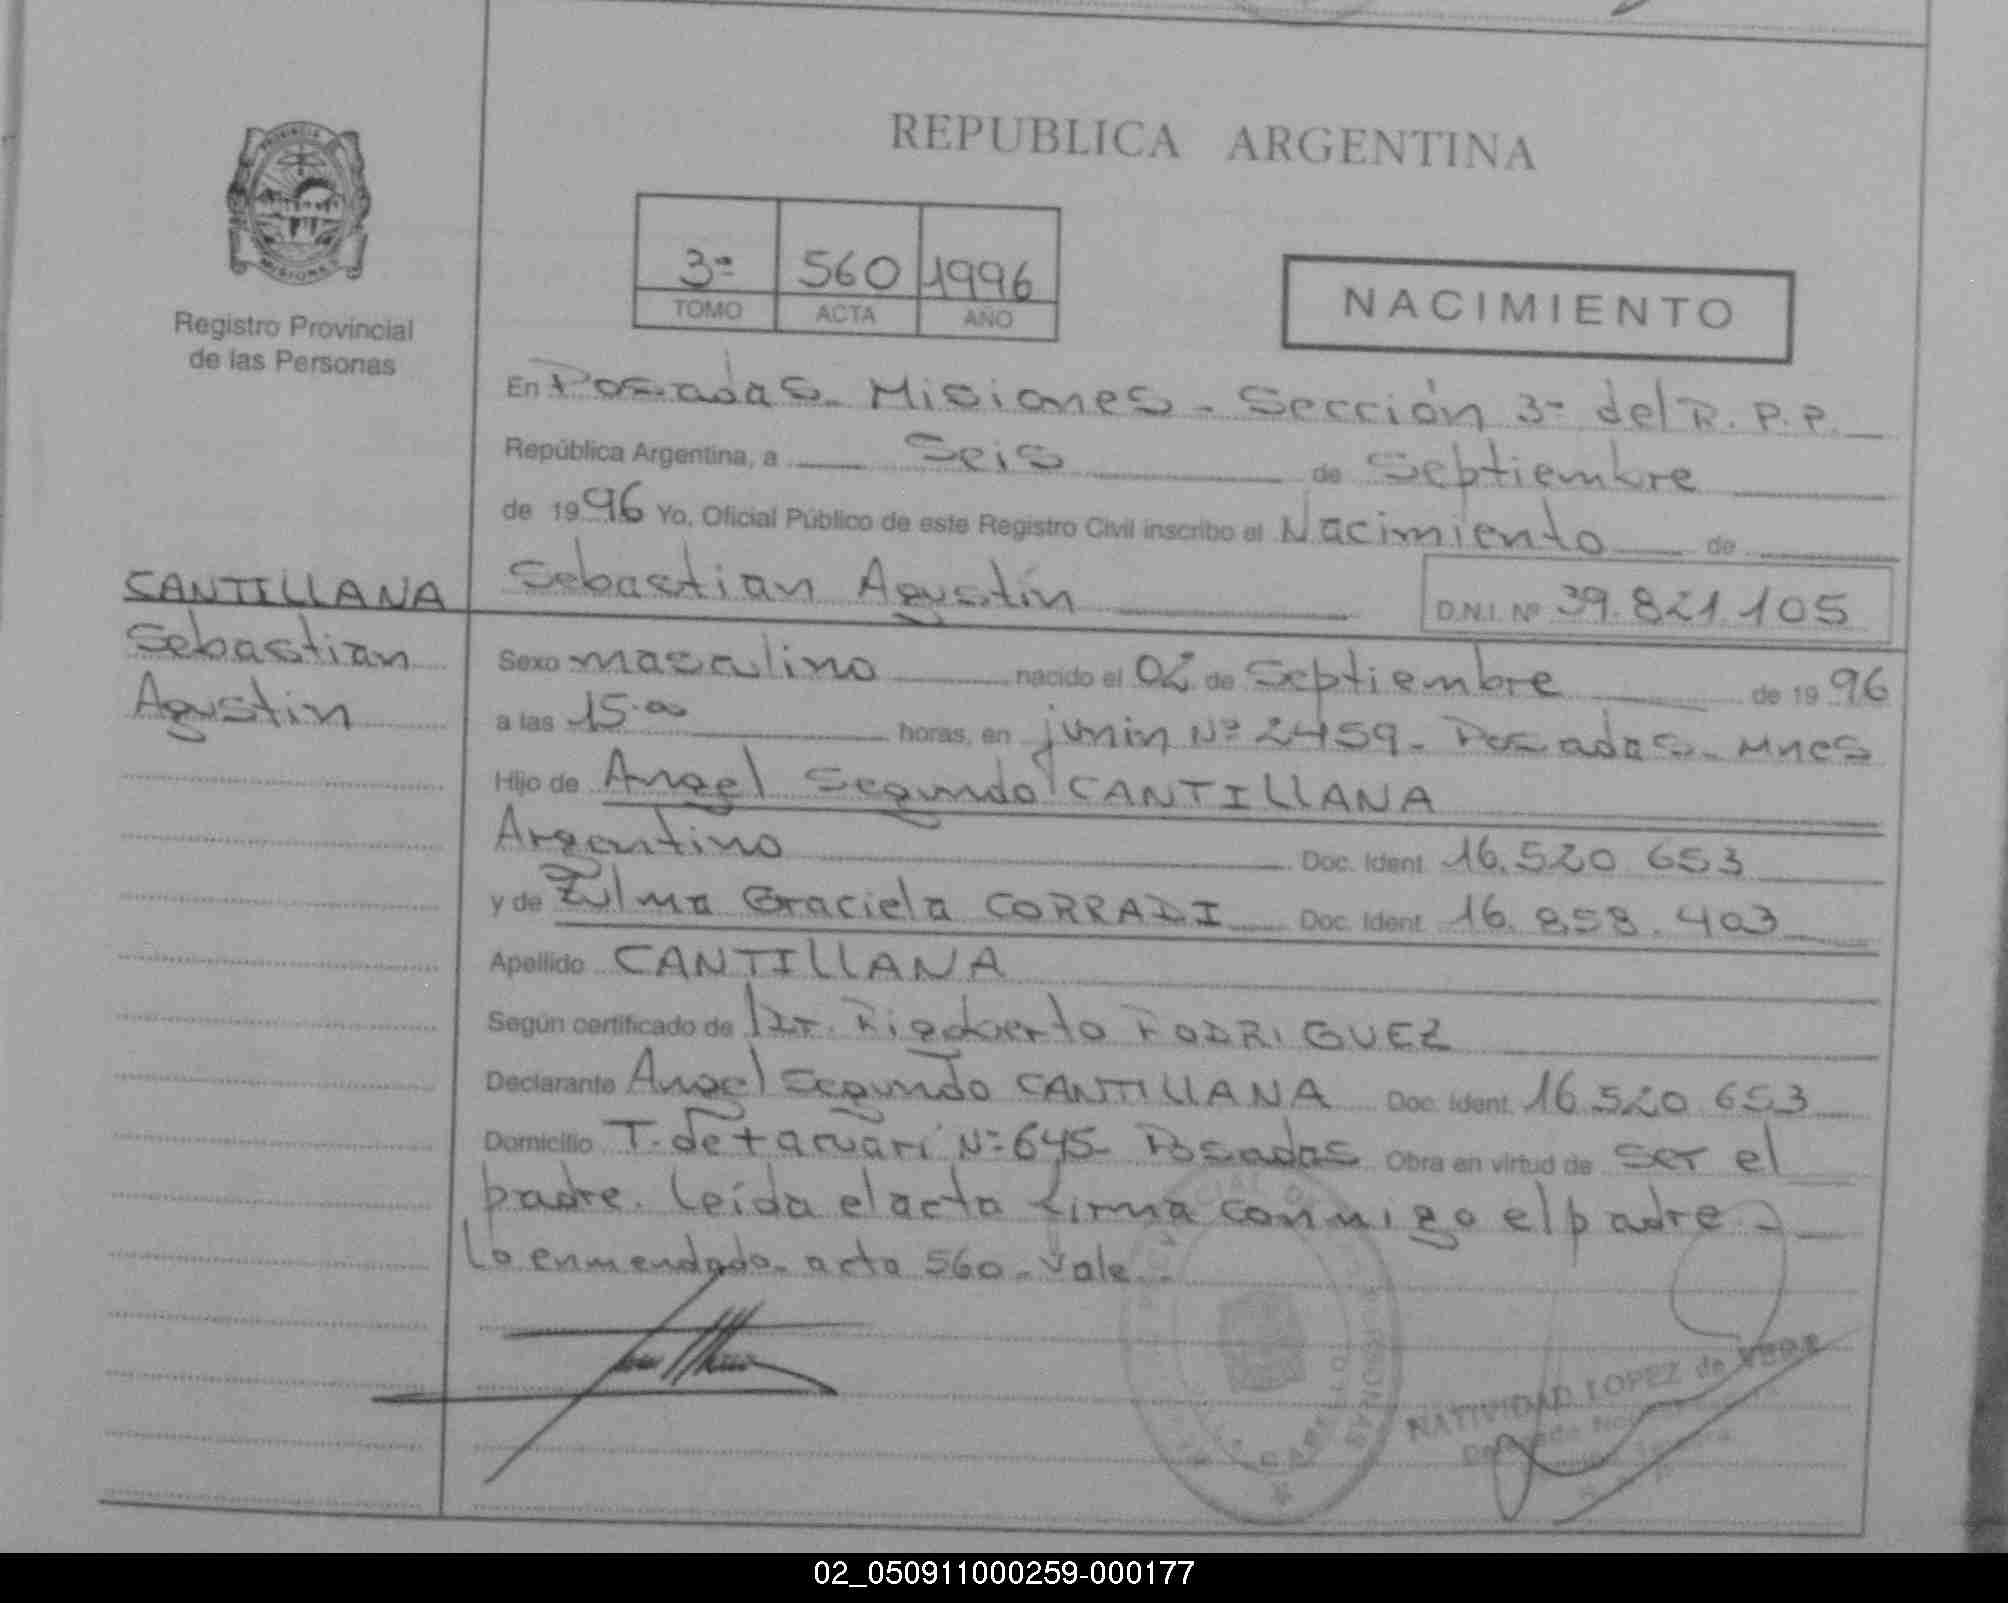 REPUBLICA ARGENTINA
PROVINCIA
MISIONES
Registro Provincial
de las Personas
3ª 560 1996
TOMO ACTA AÑO
NACIMIENTO
En Posadas - Misiones - Sección 3ª del R. P. P.
República Argentina, a Seis de Septiembre
de 1996 Yo, Oficial Público de este Registro Civil inscribo el Nacimiento de
Sebastian Agustín D.N.I. Nº 39.821.105
CANTILLANA
Sebastian
Agustin
Sexo masculino nacido el 02 de Septiembre de 1996
a las 15.00 horas, en junin Nº 2459 - Posadas - Mnes
Hijo de Angel Segundo CANTILLANA
Argentino Doc. Ident. 16.520.653
y de Zulma Graciela CORRADI Doc. Ident. 16.858.403
Apellido CANTILLANA
Según certificado de Dr. Rigoberto RODRIGUEZ
Declarante Angel Segundo CANTILLANA Doc. Ident. 16.520.653
Domicilio T. de tacuarí Nº 645 - Posadas Obra en virtud de ser el
padre. Leída el acta firma conmigo el padre -
Lo enmendado - acta 560 - Vale.
NATIVIDAD LOPEZ de
02_050911000259-000177